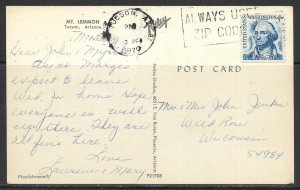 MT. LEMMON
Tucson, Arizona
TUCSON, AZ
1970
ALWAYS USE
ZIP CODE
POST CARD
Dear John & Myrtle
Are at Margies
expect to leave
Wed. for home. Hope
everyone is well
up there. They are
all fine here.
Love
Laurence & Mary
Mr & Mrs John Jenks
Wild Rose
Wisconsin
54984
Plastichrome®
P21708